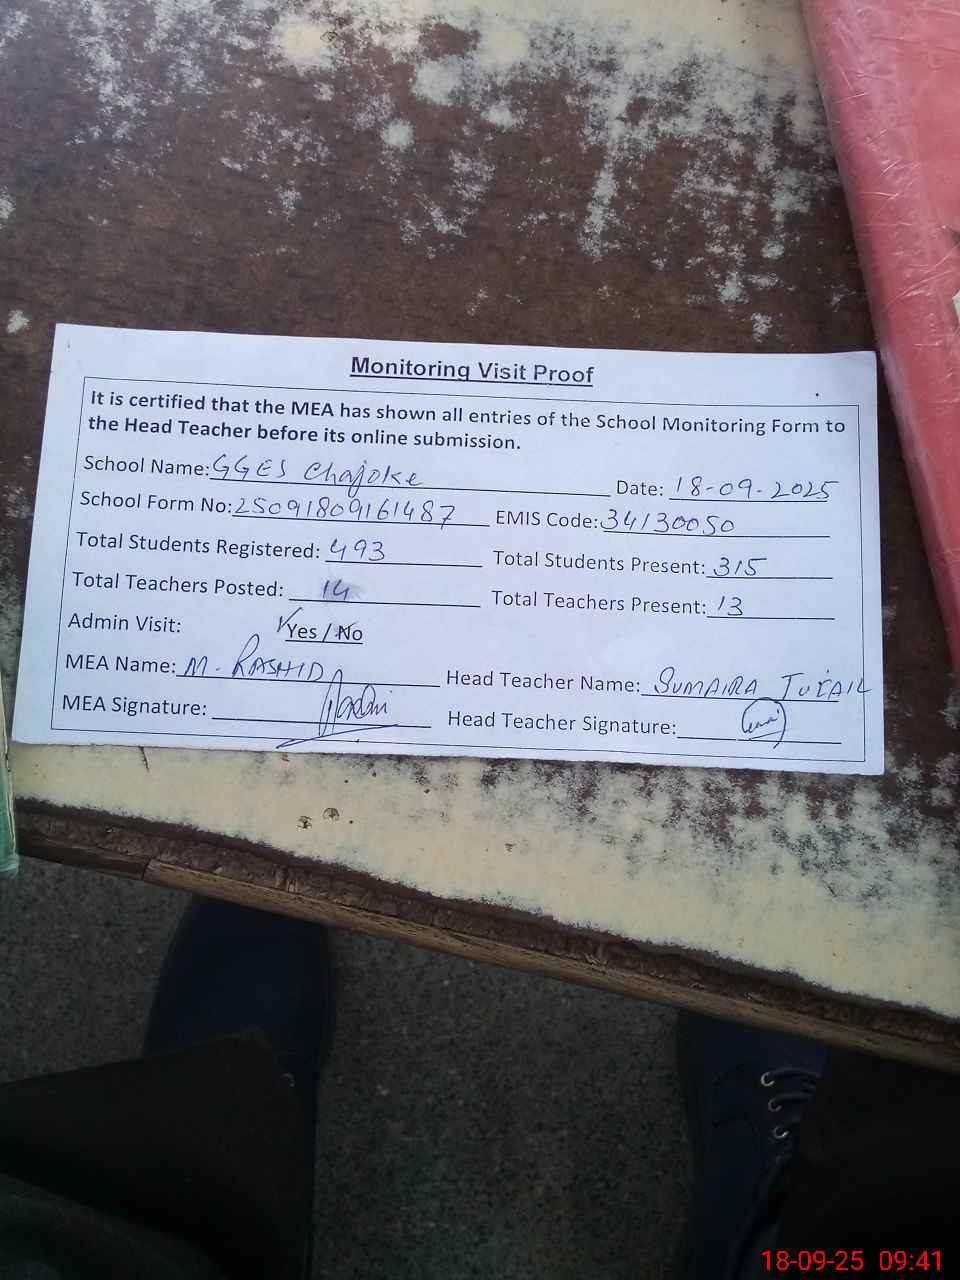 Monitoring Visit Proof
It is certified that the MEA has shown all entries of the School Monitoring Form to
the Head Teacher before its online submission.
School Name: GGES Chajoke Date: 18-09-2025
School Form No: 25091809161487 EMIS Code: 34130050
Total Students Registered: 493 Total Students Present: 315
Total Teachers Posted: 14 Total Teachers Present: 13
Admin Visit: Yes / No
MEA Name: M. RASHID Head Teacher Name: SUMAIRA
MEA Signature: Head Teacher Signature:
18-09-25 09:41